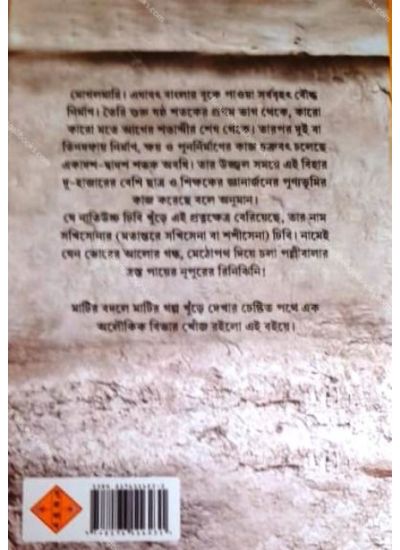 মোগলমারি। এযাবৎ বাংলার বুকে পাওয়া সর্ববৃহৎ বৌদ্ধ
নির্মাণ। তৈরি শুরু ষষ্ঠ শতকের প্রথম ভাগ থেকে, কারো
কারো মতে আগের শতাব্দীর শেষ থেকে। তারপর দুই বা
তিনদফায় নির্মাণ, ক্ষয় ও পুনর্নির্মাণের কাজ চক্রবৎ চলেছে
একাদশ-দ্বাদশ শতক অবধি। তার উজ্জ্বল সময়ে এই বিহার
দু-হাজারের বেশি ছাত্র ও শিক্ষকের জ্ঞানার্জনের পুণ্যভূমির
কাজ করেছে বলে অনুমান।
যে নাতিউচ্চ ঢিবি খুঁড়ে এই প্রত্নক্ষেত্র বেরিয়েছে, তার নাম
সখিসোনার (মতান্তরে সখিসেনা বা শশীসেনা) ঢিবি। নামেই
যেন ভোরের আলোর গন্ধ, মেঠোপথ দিয়ে চলা পল্লীবালার
ত্রস্ত পায়ের নূপুরের রিনিঝিনি!
মাটির বদলে মাটির গল্প খুঁড়ে দেখার চেষ্টিত পথে এক
অলৌকিক বিভার খোঁজ রইলো এই বইয়ে।